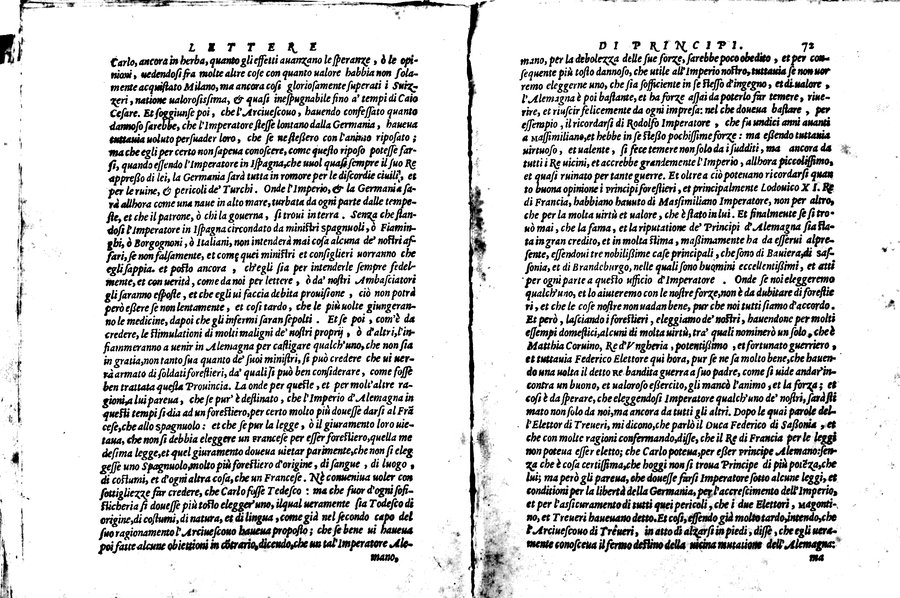 LETTERE
Carlo, ancora in herba, quanto gli effetti auanzano le speranze, ò le opi-
nioni, uedendosi fra molte altre cose con quanto ualore habbia non sola-
mente acquistato Milano, ma ancora così gloriosamente superati i Suiz-
zeri, natione ualorosissima, & quasi inespugnabile fino a' tempi di Caio
Cesare. Et soggiunse poi, che l'Arciuescouo, hauendo confessato quanto
dannoso sarebbe, che l'Imperatore stesse lontano dalla Germania, haueua
tuttauia uoluto persuader loro, che se ne stessero con l'animo riposato;
ma che egli per certo non sapeua conoscere, come questo riposo potesse far-
si, quando essendo l'Imperatore in Ispagna, che uuol quasi sempre il suo Re
appresso di lei, la Germania sarà tutta in romore per le discordie ciuili, et
per le ruine, & pericoli de' Turchi. Onde l'Imperio, & la Germania sa-
rà allhora come una naue in alto mare, turbata da ogni parte dalle tempe-
ste, et che il patrone, ò chi la gouerna, si troui in terra. Senza che stan-
dosi l'Imperatore in Spagna circondato da ministri spagnuoli, ò Fiamin-
ghi, ò Borgognoni, ò Italiani, non intenderà mai cosa alcuna de' nostri af-
fari, se non falsamente, et come quei ministri et consiglieri uorranno che
egli sappia. et posto ancora, ch'egli sia per intenderle sempre fedel-
mente, et con uerità, come da noi per lettere, ò da' nostri Ambasciatori
gli saranno esposte, et che egli ui faccia debita prouisione, ciò non potrà
però essere se non lentamente, et così tardo, che le più uolte giungeran-
no le medicine, dapoi che gli infermi saran sepolti. Et se poi, com'è da
credere, le stimulationi di molti maligni de' nostri proprij, ò d'altri, l'in-
fiammeranno a uenir in Alemagna per castigare qualch'uno, che non sia
in gratia, non tanto sua quanto de' suoi ministri, si può credere che ui uer-
rà armato di soldati forestieri, da' quali si può ben considerare, come fosse
ben trattata questa Prouincia. La onde per queste, et per molt'altre ra-
gioni, a lui pareua, che se pur' è destinato, che l'Imperio d'Alemagna in
questi tempi si dia ad un forestiero, per certo molto più douesse darsi al Frã
cese, che allo spagnuolo: et che se pur la legge, ò il giuramento loro uie-
taua, che non si debbia eleggere un francese per esser forestiero, quella me
desima legge, et quel giuramento doueua uietar parimente, che non si eleg
gesse uno Spagnuolo, molto più forestiero d'origine, di sangue, di luogo,
di costumi, et d'ogni altra cosa, che un Francese. Nè conueniua uoler con
sottigliezze far credere, che Carlo fosse Tedesco: ma che fuor d'ogni sofi-
sticheria si douesse più tosto elegger'uno, ilqual ueramente sia Todesco di
origine, di costumi, di natura, et di lingua, come già nel secondo capo del
suo ragionamento l'Arciuescouo haueua proposto; che se bene ui haueua
poi fatte alcune obiettioni in cõtrario, dicendo, che un tal'Imperatore Ale-
mano,
DI PRINCIPI. 72
mano, per la debolezza delle sue forze, sarebbe poco obedito, et per con-
sequente più tosto dannoso, che utile all'Imperio nostro, tuttauia se non uor
remo eleggerne uno, che sia sofficiente in se stesso d'ingegno, et di ualore,
l'Alemagna è poi bastante, et ha forze assai da poterlo far temere, riue-
rire, et riuscir felicemente da ogni impresa: nel che doueua bastare, per
essempio, il ricordarsi di Rodolfo Imperatore, che fu undici anni auanti
a Massimiliano, et hebbe in se stesso pochissime forze: ma essendo tuttauia
uirtuoso, et ualente, si fece temere non solo da i sudditi, ma ancora da
tutti i Re uicini, et accrebbe grandemente l'Imperio, allhora piccolissimo,
et quasi ruinato per tante guerre. Et oltre a ciò poteuano ricordarsi quan
to buona opinione i principi forestieri, et principalmente Lodouico XI. Re
di Francia, habbiano hauuto di Massimiliano Imperatore, non per altro,
che per la molta uirtù et ualore, che è stato in lui. Et finalmente se si tro-
uò mai, che la fama, et la riputatione de' Principi d'Alemagna sia sta-
ta in gran credito, et in molta stima, massimamente ha da esserui alpre-
sente, essendoui tre nobilissime case principali, che sono di Bauiera, di sas-
sonia, et di Brandeburgo, nelle quali sono huomini eccellentissimi, et atti
per ogni parte a questo ufficio d'Imperatore. Onde se noi eleggeremo
qualch'uno, et lo aiuteremo con le nostre forze, non è da dubitare di forestie
ri, et che le cose nostre non uadan bene, pur che noi tutti siamo d'accordo.
Et però, lasciando i forestieri, eleggiamo de' nostri, hauendone per molti
essempi domestici, alcuni di molta uirtù, tra' quali nominerò un solo, che è
Matthia Coruino, Re d'Vngheria, potentissimo, et fortunato guerriero,
et tuttauia Federico Elettore qui hora, pur se ne sa molto bene, che hauen-
do una uolta il detto re bandita guerra a suo padre, come si uide andar'in-
contra un buono, et ualoroso essercito, gli mancò l'animo, et la forza; et
così è da sperare, che eleggendosi Imperatore qualch'uno de' nostri, sarà sti
mato non solo da noi, ma ancora da tutti gli altri. Dopo le quai parole del-
l'Elettor di Treueri, mi dicono, che parlò il Duca Federico di Sassonia, et
che con molte ragioni confermando, disse, che il Re di Francia per le leggi
non poteua esser eletto; che Carlo poteua, per esser principe Alemano: sen-
za che è cosa certissima, che hoggi non si troua Principe di più potẽza, che
lui; ma però gli pareua, che douesse farsi Imperatore sotto alcune leggi, et
conditioni per la libertà della Germania, per l'accrescimento dell'Imperio,
et per l'assicuramento di tutti quei pericoli, che i due Elettori, Magonti-
no, et Treueri haueuano detto. Et così, essendo già molto tardo, intendo, che
l'Arciuescouo di Treueri, in atto di alzarsi in piedi, disse, che egli uera-
mente conosceua il fermo destino della uicina mutatione dell'Alemagna:
ma